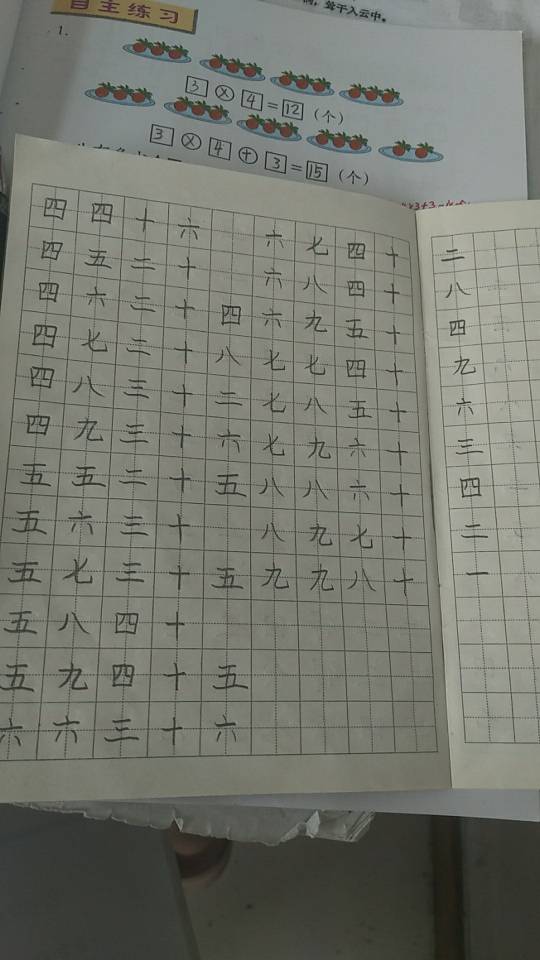 自主练习
1.
3 × 4 = 12 （个）
3 × 4 + 3 = 15 （个）
四四十六 六七四十二
四五二十 六八四十八
四六二十四六九五十四
四七二十八七七四十九
四八三十二七八五十六
四九三十六七九六十三
五五二十五八八六十四
五六三十 八九七十二
五七三十五九九八十一
五八四十
五九四十五
六六三十六